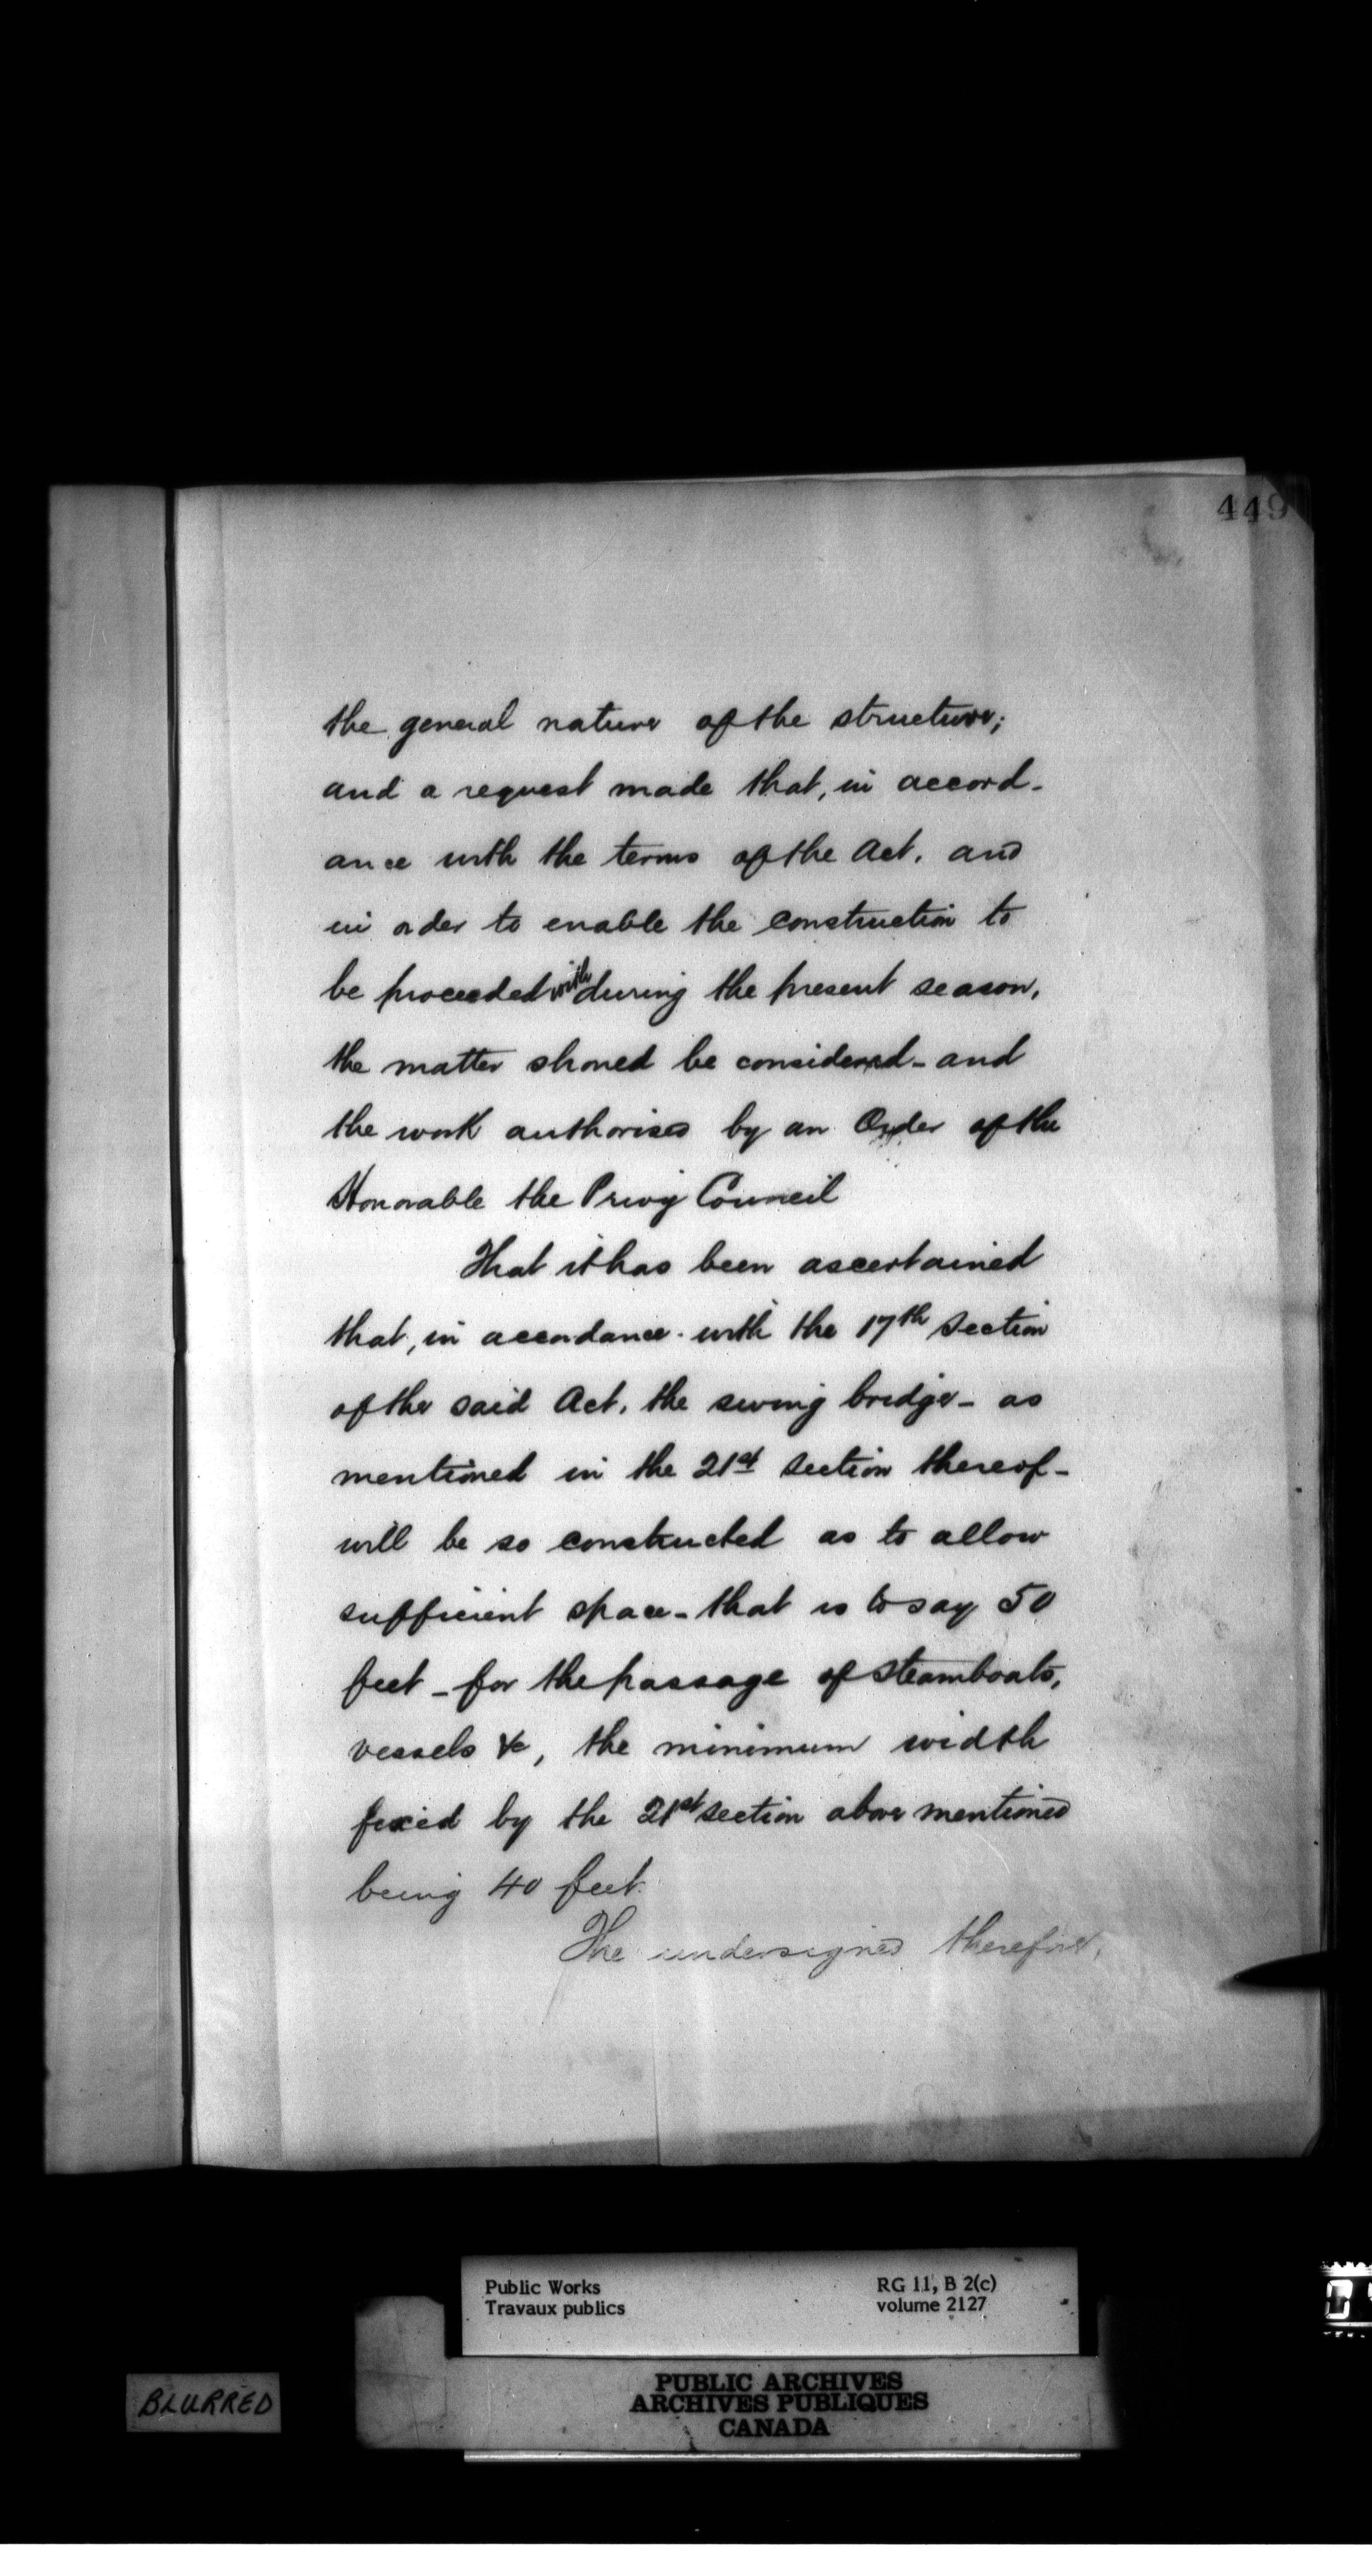 449
the general nature of the structure;
and a request made that, in accord-
ance with the terms of the Act, and
in order to enable the construction to
be proceeded with during the present season,
the matter should be considered - and
the work authorised by an Order of the
Honorable the Privy Council
That it has been ascertained
that, in accordance with the 17th Section
of the said Act, the swing bridge - as
mentioned in the 21st Section thereof -
will be so constructed as to allow
sufficient space - that is to say 50
feet - for the passage of steamboats,
vessels &c, the minimum width
fixed by the 21st section above mentioned
being 40 feet.
The undersigned therefore,
Public Works RG 11, B 2(c)
Travaux publics volume 2127
BLURRED
PUBLIC ARCHIVES
ARCHIVES PUBLIQUES
CANADA